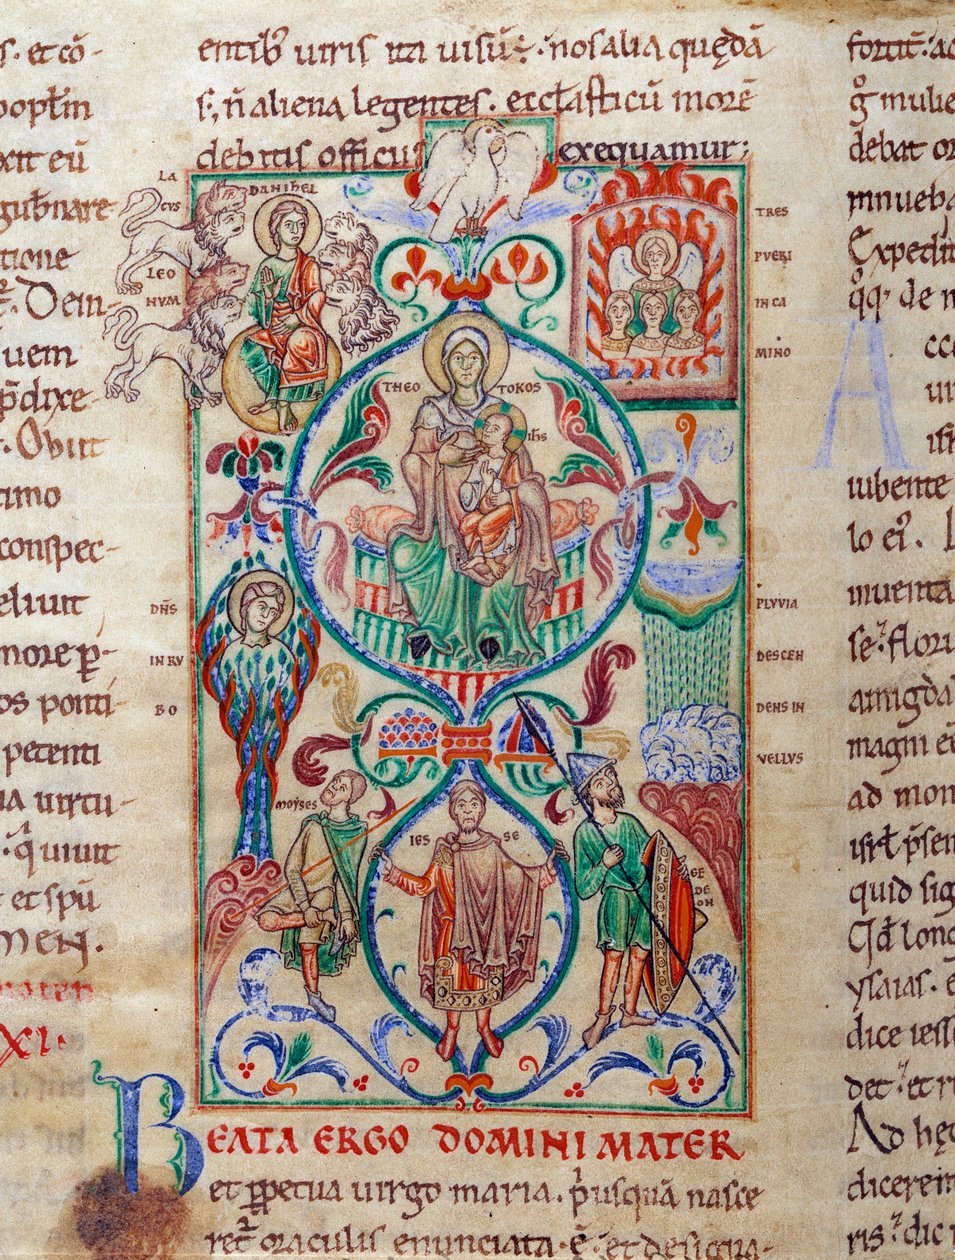 s. et cō-
popłm
xit eū
gub̄nare
tione
Dein-
uem
p̄dixe-
Obiit
timo
conspec-
eliuit
more p̱-
os ponti-
petenti
ia uirtu-
quiuit
et spū
men.
XI.
entib; uiris ita uisū. nos alia quędā
s; n̄ aliena legentes. et ecłasticū morē
debitis officiis exequamur;
LACUS
LEO
NUM
DANIHEL
TRES
PUERI
IN CA
MINO
THEO TOKOS
IHS
DN̄S
IN RU
BO
PLUVIA
DESCEN
DENS IN
VELLUS
MOYSES
IES SE
GE
DE
ON
BEATA ERGO DOMINI MATER
et p̱petua uirgo maria. p̄usquā nasce
ret̄ oraculis enunciata ē. et designa-
fortit̄. ac
mulie
debat or
minueba
Expedit
qq; de n
A
iubente
lo ei.
inuenta
se. floru
amigda
magni
ad mon
isrł p̄sen
quid sig
Qd̄ long
ysaias. e
dice uess
det. et r
Ad hęt
dicerem
ris. dic